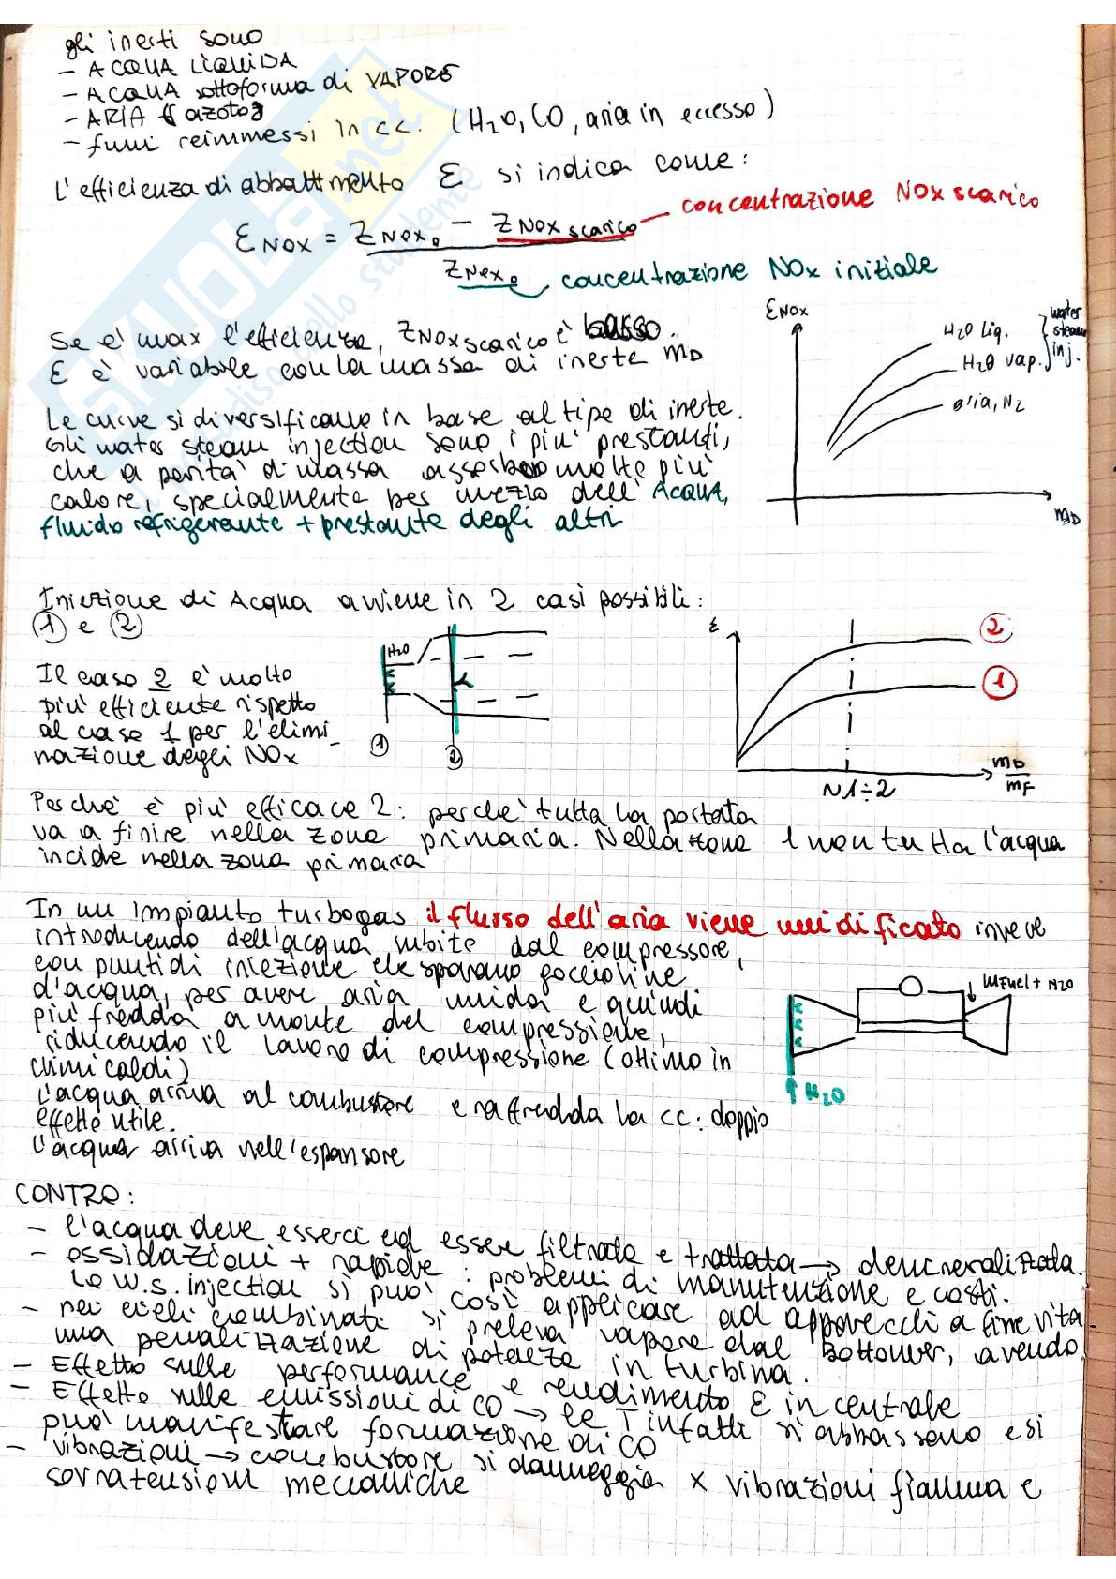 gli inerti sono
- ACQUA LIQUIDA
- ACQUA sottoforma di VAPORE
- ARIA { azoto }
- fumi reimmessi in cc. (H₂O, CO, aria in eccesso)
L'efficienza di abbattimento ε si indica come:
ε NOX = Z NOX₀ - Z NOX scarico
concentrazione NOx scarico
Z NOX₀
concentrazione NOx iniziale
Se è max l'efficienza, Z NOX scarico è basso.
ε è variabile con la massa di inerte mD
Le curve si diversificano in base al tipo di inerte.
Gli water steam injection sono i più prestanti,
che a parità di massa assorbono molto più
calore, specialmente per mezzo dell'ACQUA,
fluido refrigerante + prestante degli altri
εNOX
H₂O liq.
H₂O vap.
aria, N₂
water
steam
inj.
mD
Iniezione di Acqua avviene in 2 casi possibili:
① e ②
Il caso 2 è molto
più efficiente rispetto
al caso 1 per l'elimi-
nazione degli NOx
H₂O
①
②
ε
②
①
~1÷2
mD
mF
Perché è più efficace 2: perché tutta la portata
va a finire nella zona primaria. Nella zona 1 non tutta l'acqua
incide nella zona primaria
In un impianto turbogas il flusso dell'aria viene umidificato invece
introducendo dell'acqua subito dal compressore,
con punti di iniezione che sparano goccioline
d'acqua, per avere aria umida e quindi
più fredda a monte del compressione,
riducendo il lavoro di compressione (ottimo in
climi caldi)
L'acqua arriva al combustore e raffredda la cc: doppio
effetto utile.
L'acqua arriva nell'espansore
mFuel + H₂O
H₂O
CONTRO:
- l'acqua deve esserci ed essere filtrata e trattata → demineralizzata.
- ossidazioni + rapide: problemi di manutenzione e costi.
La w.s. injection si può così applicare ad apparecchi a fine vita
- nei cicli combinati si preleva vapore dal Bottomer, avendo
una penalizzazione di potenza in turbina.
- Effetto sulle performance e rendimento ε in centrale
- Effetto sulle emissioni di CO → le T infatti si abbassano e si
può manifestare formazione di CO
- vibrazioni → combustore si danneggia x vibrazioni fiamma e
sovratensioni meccaniche